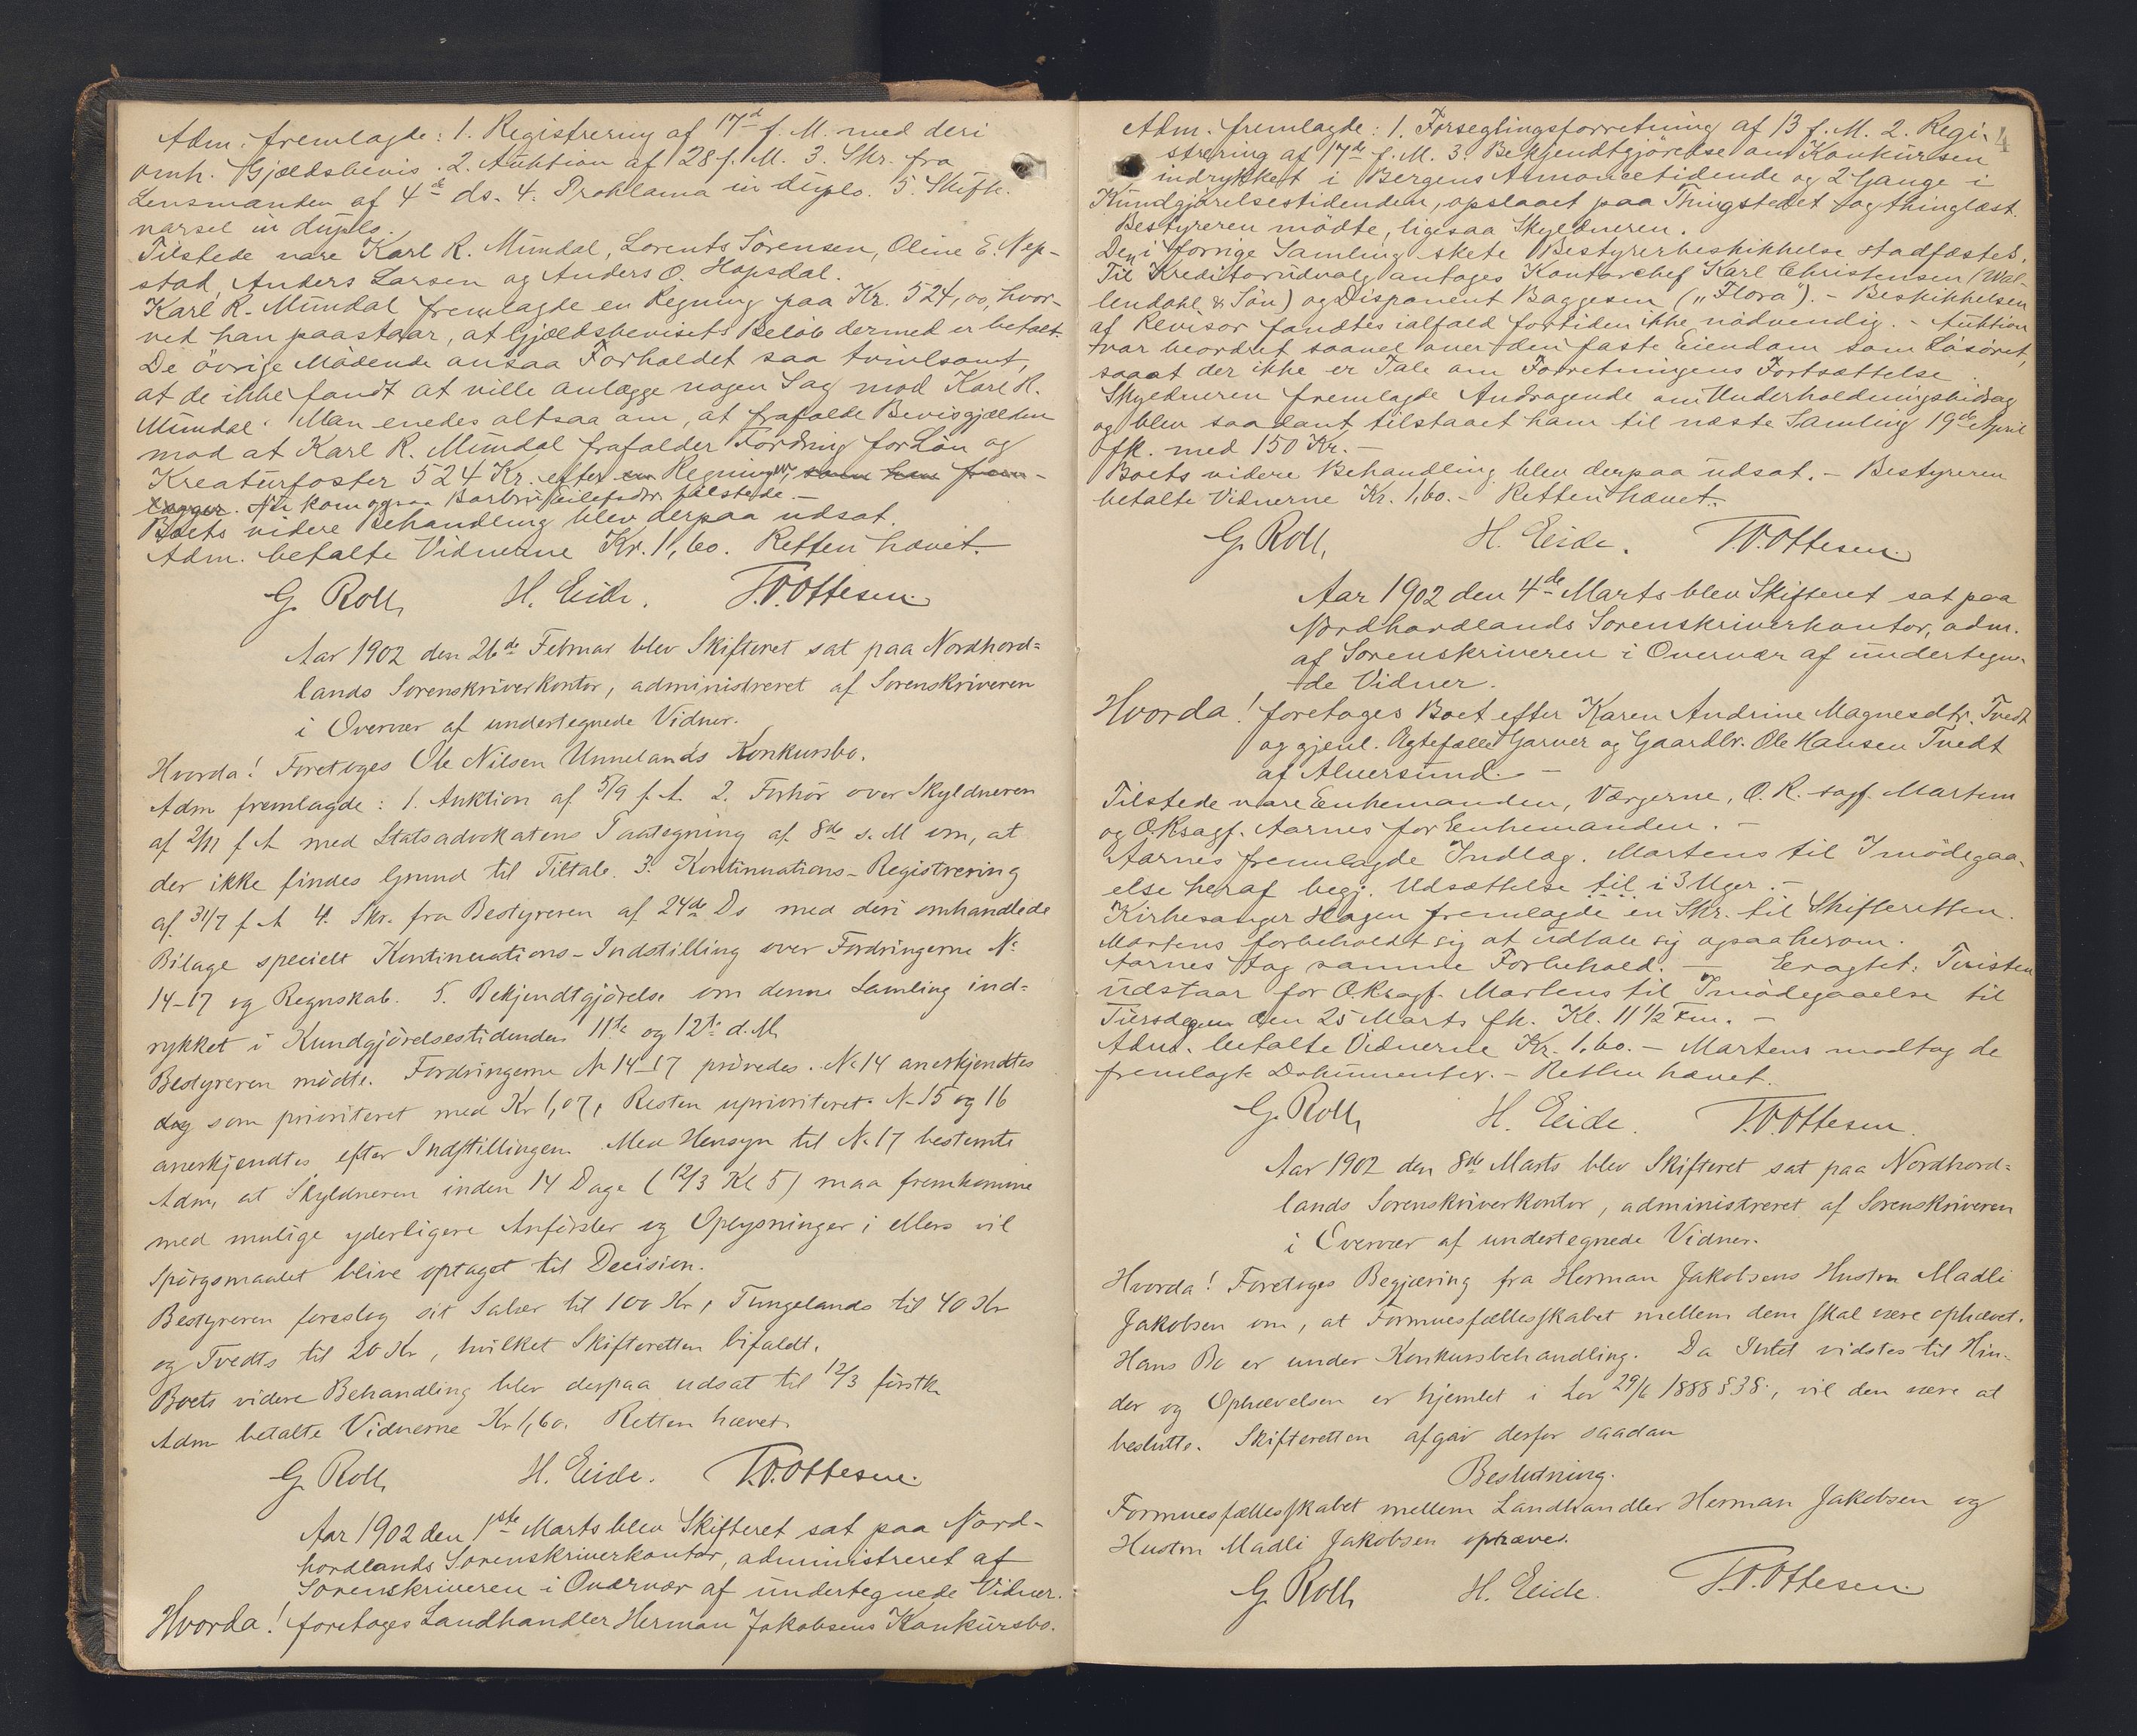 Adm. fremlagde: 1. Registrering af 17d f. M. med deri
omh. Gjældsbevis. 2. Auktion af 28 f. M. 3. Skr. fra
Lensmanden af 4de ds. 4. Proklama in duplo. 5. Skifte-
varsel in duplo.
Tilstede vare Karl R. Mundal, Lorents Sörensen, Oline E. Nep-
stad, Anders Larsen og Anders O. Hopsdal.
Karl R. Mundal fremlagde en Regning paa Kr. 524,00, hvor-
ved han paastaar, at Gjældsbevisets Beløb dermed er betalt.
De övrige Mödende ansaa Forholdet saa tvivlsomt,
at de ikke fandt at ville anlægge nogen Sag mod Karl R.
Mundal. Man enedes altsaa om, at frafalde Bevisgjælden
mod at Karl R. Mundal frafalder Fordring for Lön og
Kreaturfoster 524 Kr. efter en Regningen, som han frem-
lægger. Nu kom ogsaa Barbru tilstede.-
Boets videre Behandling blev derpaa udsat.
Adm. betalte Vidnerne Kr. 1,60. Retten hævet.
G. Roll, H. Eide. T.O.Ottesen.
Aar 1902 den 26de Februar blev Skifteret sat paa Nordhord=
lands Sorenskriverkontor, administreret af Sorenskriveren
i Overvær af undertegnede Vidner.
Hvorda! Foretoges Ole Nilsen Unnelands Konkursbo.
Adm fremlagde: 1. Auktion af 5/9 f. A. 2. Forhör over Skyldneren
af 2/11 f A med Statsadvokatens Paategning af 8de s. M om, at
der ikke findes Grund til Tiltale. 3. Kontinuations-Registrering
af 31/7 f A 4. Skr. fra Bestyreren af 24de Ds med deri omhandlede
Bilage specielt Kontinuations-Indstilling over Fordringerne No
14-17 og Regnskab. 5. Bekjendtgjörelse om denne Samling ind=
rykket i Kundgjörelsestidenden 11te og 12te d. M.
Bestyreren mödte. Fordringerne No 14-17 prövedes. No 14 anerkjendtes
dog som prioriteret med Kr 1,07, Resten uprioriteret. No 15 og 16
anerkjendtes efter Indstillingen. Med Hensyn til No 17 bestemte
Adm, at Skyldneren inden 14 Dage (12/3 Kl 5) maa fremkomme
med mulige yderligere Anförsler og Oplysninger i ellers vil
Spörgsmaalet blive optaget til Decision.
Bestyreren foreslog sit Salær til 100 Kr, Tungelands til 40 Kr
og Tvedts til 20 Kr, hvilket Skifteretten bifaldt.
Boets videre Behandling blev derpaa udsat til 12/3 förstk.
Adm betalte Vidnerne Kr 1,60. Retten hævet.
G. Roll, H. Eide. T.O.Ottesen.
Aar 1902 den 1ste Marts blev Skifteret sat paa Nord-
hordlands Sorenskriverkontor, administreret af
Sorenskriveren i Overvær af undertegnede Vidner.
Hvorda! foretoges Landhandler Herman Jakobsens Konkursbo.
4
Adm. fremlagde: 1. Forseglingsforretning af 13 f. M. 2. Regi-
strering af 17de f. M. 3. Bekjendtgjörelse om Konkursen
indrykket i Bergens Annoncetidende og 2 Gange i
Kundgjørelsestidenden, opslaaet paa Thingstedet og thinglæst.
Bestyreren mödte, ligesaa Skyldneren.
Den i forrige Samling skete Bestyrerbeskikkelse stadfæstes.
Til Kreditorudvalg antoges Kontorchef Karl Christensen (Wal-
lendahl & Sön) og Disponent Baggesen ("Flora"). - Beskikkelsen
af Revisor fandtes ialfald fortiden ikke nödvendig. - Auktion
var beordret saavel over den faste Eiendom som Lösöret,
saaat der ikke er Tale om Forretningens Fortsættelse.
Skyldneren fremlagde Andragende om Underholdningsbidrag
og blev saadant tilstaaet ham til næste Samling 19de April
fk. med 150 Kr. -
Boets videre Behandling blev derpaa udsat. - Bestyreren
betalte Vidnerne Kr. 1,60. - Retten hævet.
G. Roll, H. Eide. T.O.Ottesen.
Aar 1902 den 4de Marts blev Skifteret sat paa
Nordhordlands Sorenskriverkontor, adm.
af Sorenskriveren i Overvær af undertegne-
de Vidner.
Hvorda! foretoges Boet efter Karen Andrine Magnesdtr. Tvedt
og gjenl. Ægtefælle Garver og Gaardbr. Ole Hansen Tvedt
af Alversund. -
Tilstede vare Enkemanden, Værgerne, O. R. sagf. Martens
og O.R.sagf. Aarnes for Enkemanden. -
Aarnes fremlagde Indlæg. Martens til Imödegaa-
else heraf begj. Udsættelse til i 3 Uger. -
Kirkesanger Hagen fremlagde en Skr. til Skifteretten.
Martens forbeholdt sig at udtale sig ogsaa herom.
Aarnes tog samme Forbehold. - Eragtet: Tvisten
udstaar for O.R.sagf. Martens til Imödegaaelse til
Tirsdagen den 25 Marts fk. Kl. 11 1/2 Fm. -
Adm. betalte Vidnerne Kr. 1,60. - Martens modtog de
fremlagte Dokumenter. - Retten hævet.
G. Roll, H. Eide. T.O.Ottesen.
Aar 1902 den 8de Marts blev Skifteret sat paa Nordhord=
lands Sorenskriverkontor, administreret af Sorenskriveren
i Overvær af undertegnede Vidner.
Hvorda! Foretoges Begjæring fra Herman Jakobsens Hustru Madli
Jakobsen om, at Formuesfællesskabet mellem dem skal være ophævet.
Hans Bo er under Konkursbehandling. Da Intet vidstes til Hin-
der og Ophævelsen er hjemlet i Lov 29/6 1888 § 38., vil den være at
beslutte. Skifteretten afgav derfor saadan
Beslutning.
Formuesfællesskabet mellem Landhandler Herman Jakobsen og
Hustru Madli Jakobsen ophæves.
G. Roll, H. Eide. T.O.Ottesen.